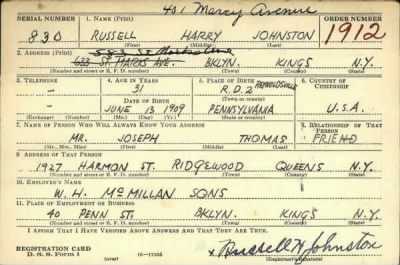 401 Marcy Avenue
SERIAL NUMBER 1. NAME (Print) ORDER NUMBER
830 RUSSELL HARRY JOHNSTON 1912
(First) (Middle) (Last)
583 St. Marks Ave
2. ADDRESS (Print)
633 ST. MARKS AVE. BKLYN. KINGS N.Y.
(Number and street or R. F. D. number) (Town) (County) (State)
3. TELEPHONE 4. AGE IN YEARS 5. PLACE OF BIRTH 6. COUNTRY OF CITIZENSHIP
— 31 R.D.2 REYNOLDSVILLE
DATE OF BIRTH (Town or county)
— JUNE 13 1909 PENNSYLVANIA U.S.A.
(Exchange) (Number) (Mo.) (Day) (Yr.) (State or country)
7. NAME OF PERSON WHO WILL ALWAYS KNOW YOUR ADDRESS 8. RELATIONSHIP OF THAT PERSON
MR. JOSEPH THOMAS FRIEND
(Mr., Mrs., Miss) (First) (Middle) (Last)
9. ADDRESS OF THAT PERSON
1927 HARMON ST. RIDGEWOOD QUEENS N.Y.
(Number and street or R. F. D. number) (Town) (County) (State)
10. EMPLOYER'S NAME
W. H. McMILLAN SONS
11. PLACE OF EMPLOYMENT OR BUSINESS
40 PENN ST. BKLYN. KINGS N.Y.
(Number and street or R. F. D. number) (Town) (County) (State)
I AFFIRM THAT I HAVE VERIFIED ABOVE ANSWERS AND THAT THEY ARE TRUE.
REGISTRATION CARD x Russell H Johnston
D. S. S. Form 1 (over) 16—17105 (Registrant's signature)